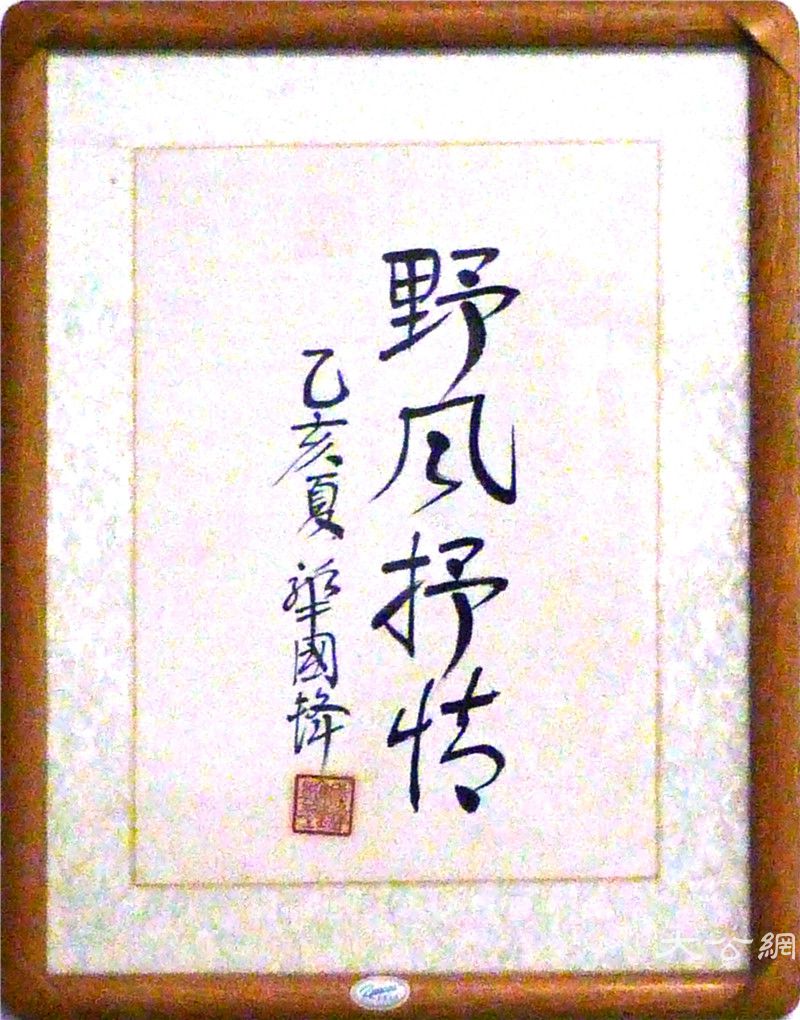 野风抒情
乙亥夏 華國鋒
大公網